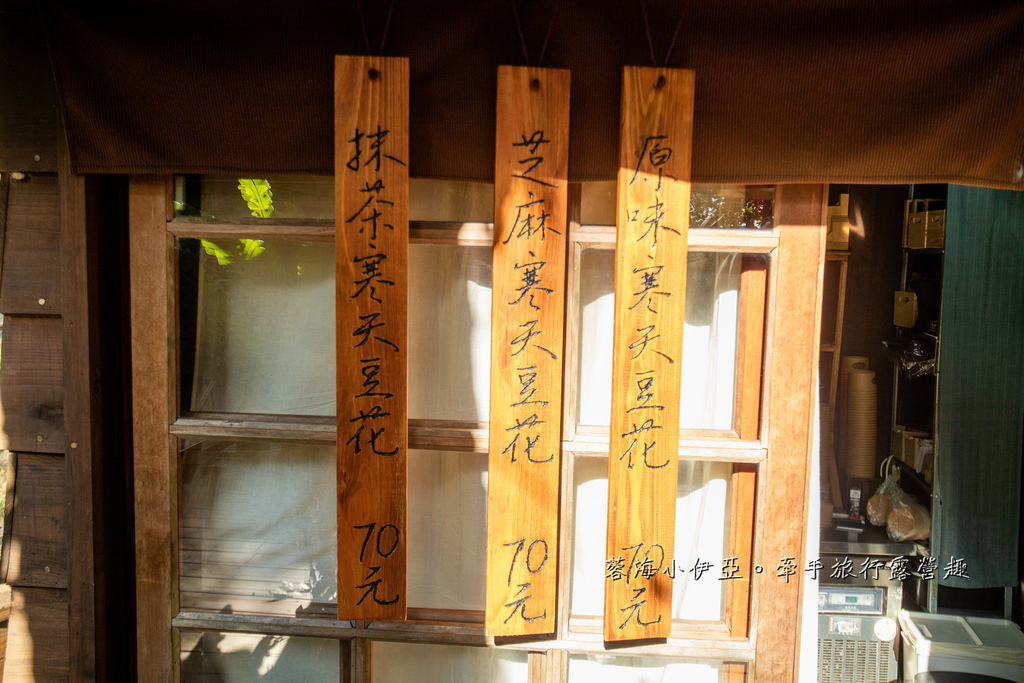 原味寒天豆花 70元
芝麻寒天豆花 70元
抹茶寒天豆花 70元
蓉海小伊亞。牽手旅行露營趣